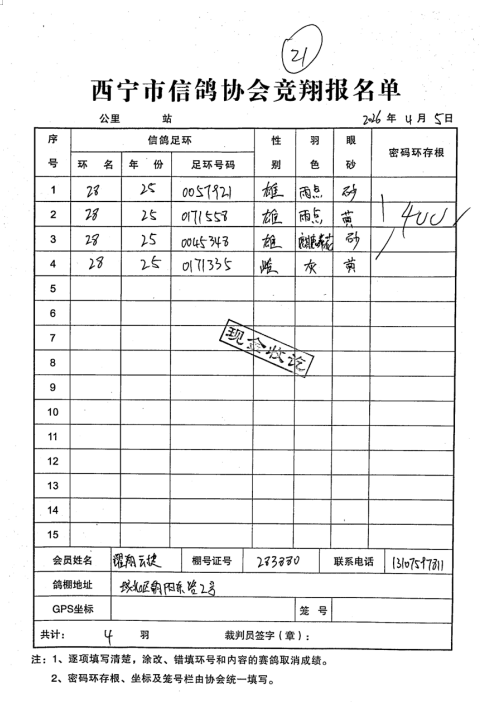 21
西宁市信鸽协会竞翔报名单
公里 站 2026 年 4 月 5 日
序号 信鸽足环 性别 羽色 眼砂 密码环存根
环 名 年 份 足环号码
1 28 25 0057921 雄 雨点 砂
2 28 25 0171558 雄 雨点 黄 400
3 28 25 0045348 雄 砂
4 28 25 0171335 雌 灰 黄
5
6
7
现金收讫
8
9
10
11
12
13
14
15
会员姓名 翔云捷 棚号证号 283880 联系电话 13107597811
鸽棚地址 城北区朝阳东路2号
GPS坐标 笼 号
共计： 4 羽 裁判员签字（章）：
注：1、逐项填写清楚，涂改、错填环号和内容的赛鸽取消成绩。
2、密码环存根、坐标及笼号栏由协会统一填写。